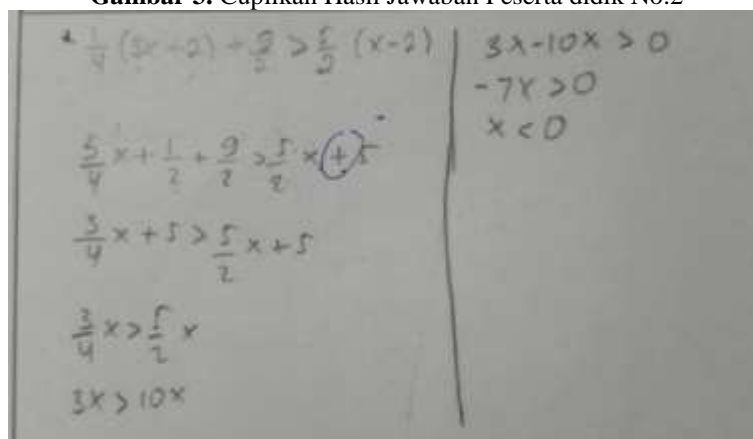 Gambar 3. Cuplikan Hasil Jawaban Peserta didik No.2
* 1/4 (3x+2) + 9/2 > 5/2 (x-2)
5/4 x + 1/2 + 9/2 > 5/2 x + 5
3/4 x + 5 > 5/2 x + 5
3/4 x > 5/2 x
3x > 10x
3x-10x > 0
-7x > 0
x < 0